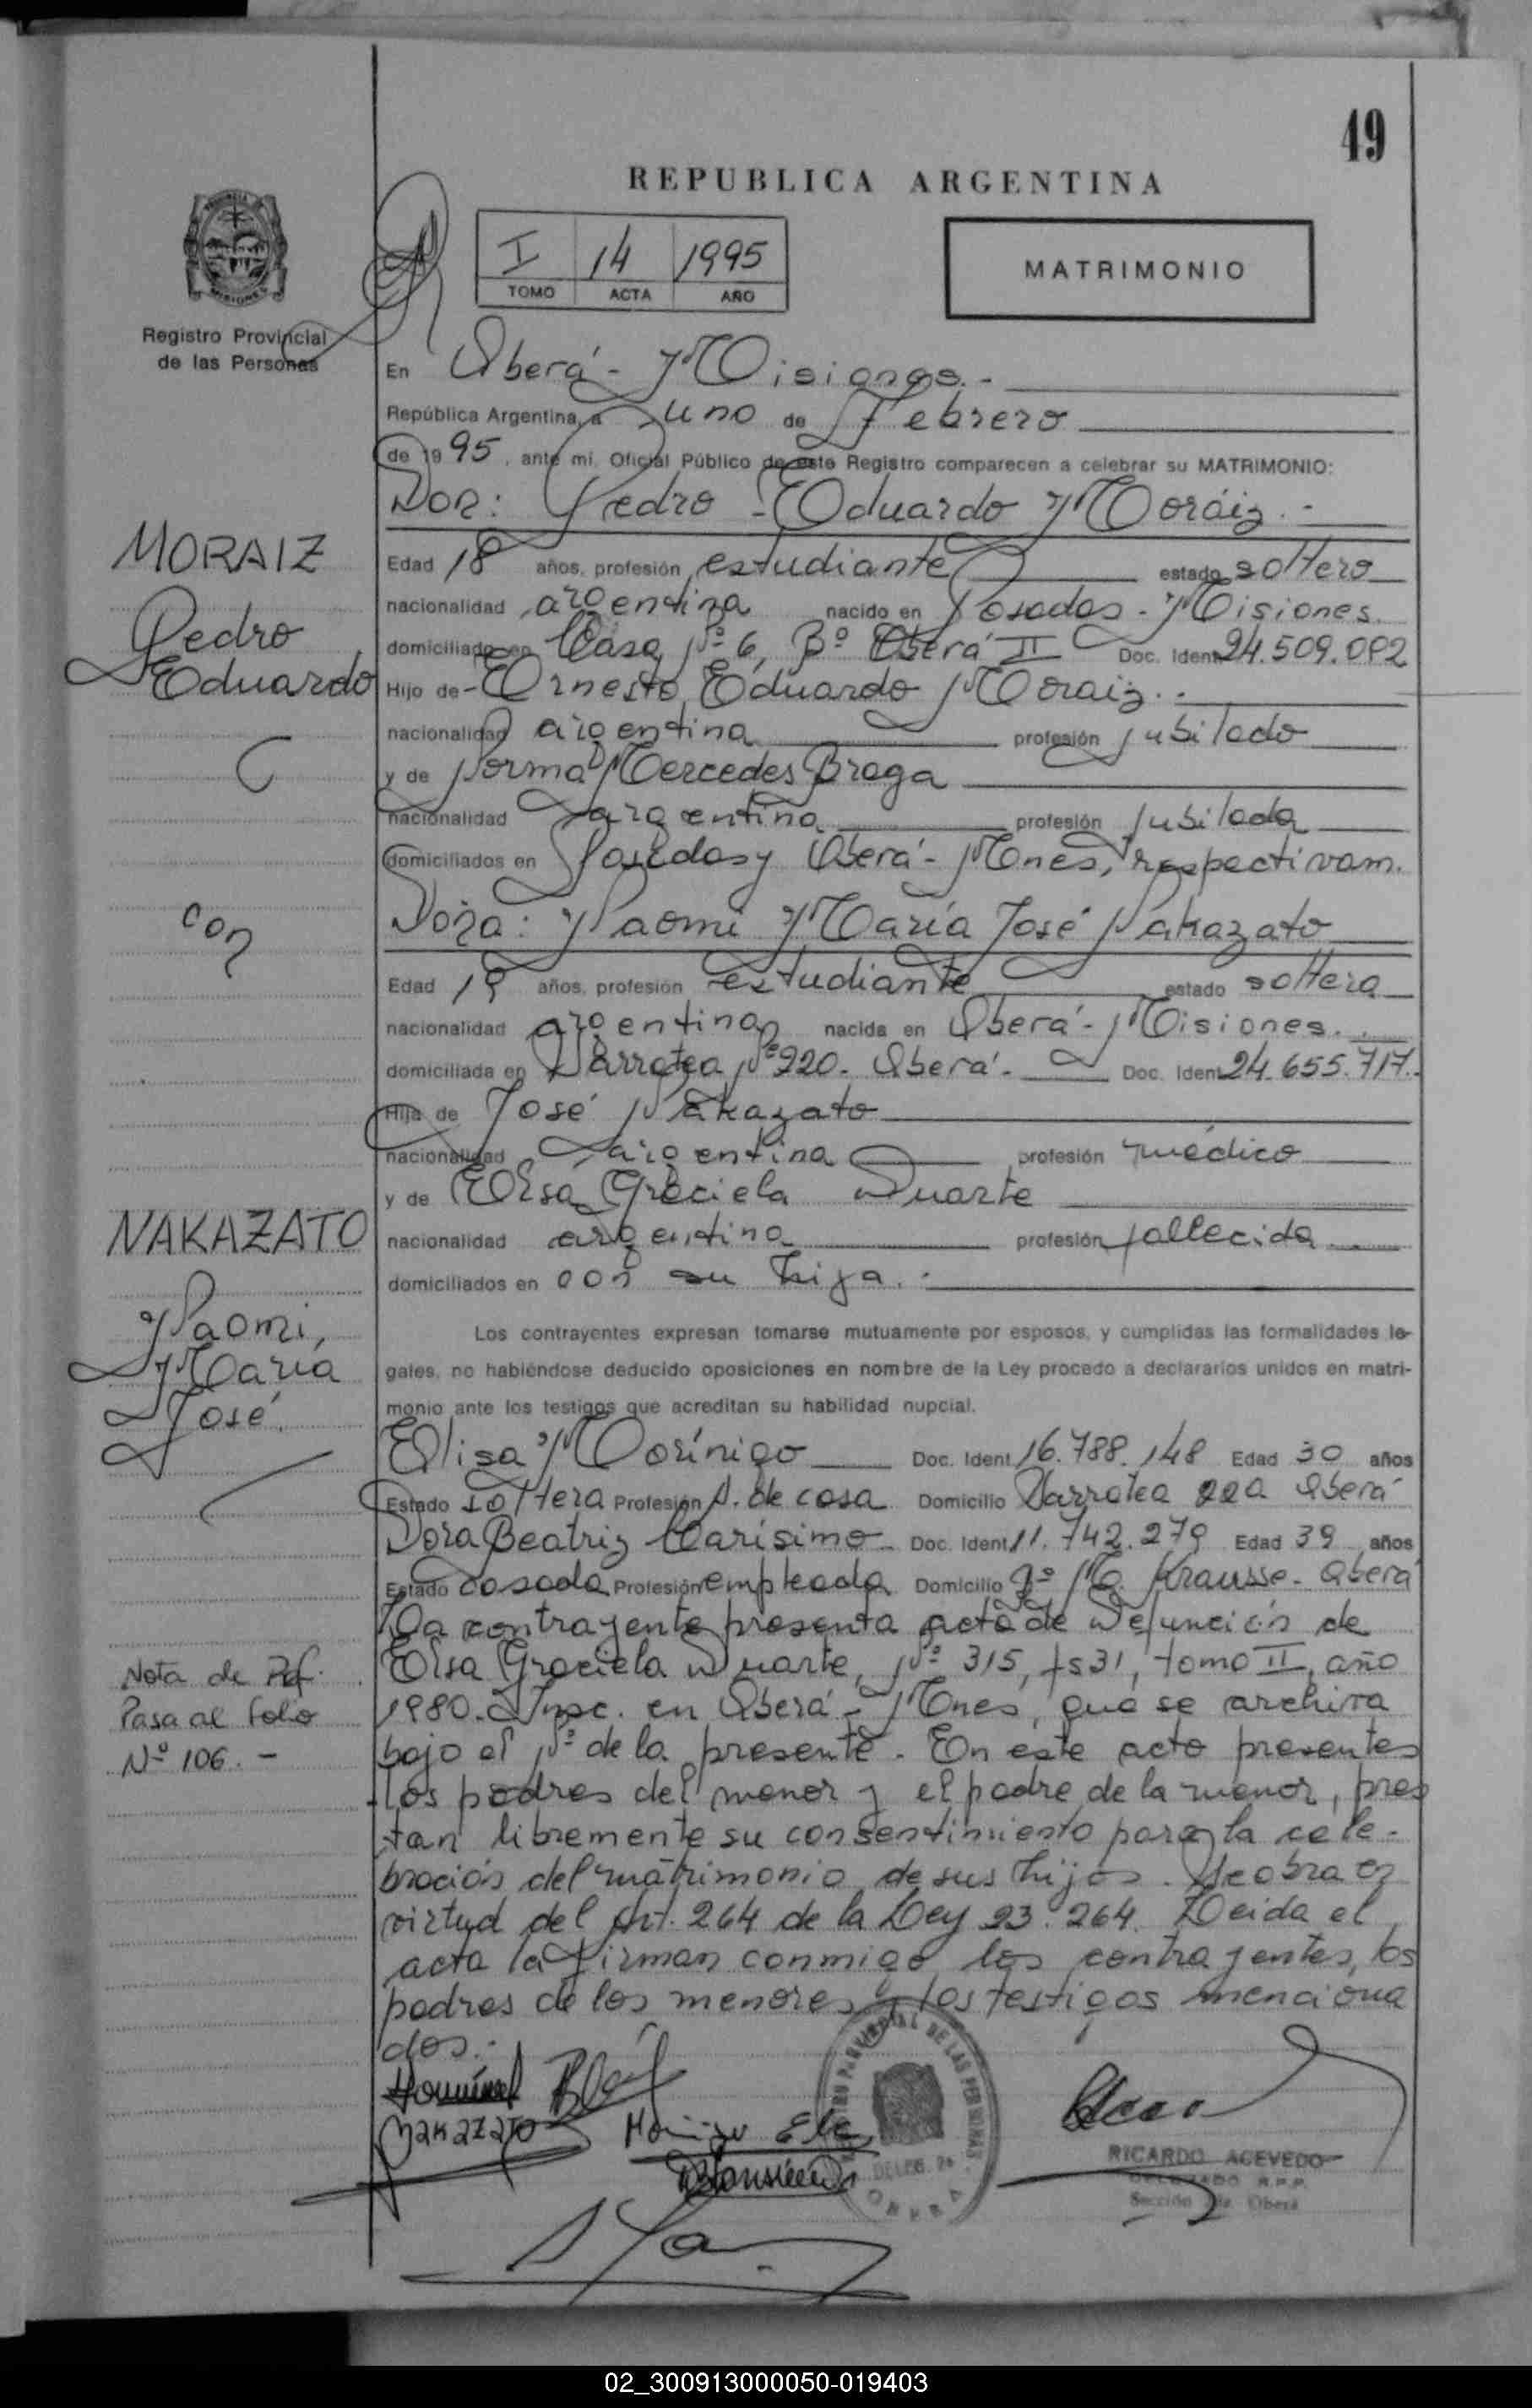 49
REPUBLICA ARGENTINA
I 14 1995
TOMO ACTA AÑO
MATRIMONIO
Registro Provincial
de las Personas
En Oberá - Misiones.-
República Argentina, a uno de Febrero
de 1995, ante mi, Oficial Público de este Registro comparecen a celebrar su MATRIMONIO:
Don: Pedro Eduardo Moráiz.-
Edad 18 años, profesión estudiante estado soltero
nacionalidad argentina nacido en Posadas - Misiones.
domiciliado en Casa Nº 6, Bº Oberá II Doc. Ident. 24.509.092
Hijo de Ernesto Eduardo Moraiz.-
nacionalidad argentina profesión jubilado
y de Norma Mercedes Braga
nacionalidad argentina profesión jubilada
domiciliados en Posadas y Oberá - Mnes, respectivam.
Doña: Naomi María José Nakazato
Edad 19 años, profesión estudiante estado soltera
nacionalidad argentina nacida en Oberá - Misiones.
domiciliada en Larratea Nº 220. Oberá.- Doc. Ident. 24.655.717.
Hija de José Nakazato
nacionalidad argentina profesión médico
y de Elsa Graciela Duarte
nacionalidad argentina profesión fallecida
domiciliados en con su hija.-
Los contrayentes expresan tomarse mutuamente por esposos, y cumplidas las formalidades le-
gales, no habiéndose deducido oposiciones en nombre de la Ley procedo a declararlos unidos en matri-
monio ante los testigos que acreditan su habilidad nupcial.
Elisa Morínigo Doc. Ident. 16.788.148 Edad 30 años
Estado soltera Profesión A. de casa Domicilio Larratea 220 Oberá
Dora Beatriz Carísimo Doc. Ident. 11.742.279 Edad 39 años
Estado casada Profesión empleada Domicilio Krausse - Oberá
La contrayente presenta acta de Defunción de
Elsa Graciela Duarte, Nº 315, fs 31, tomo II, año
1980. Insc. en Oberá - Mnes, que se archiva
bajo el Nº de la presente. En este acto presentes
los padres del menor y el padre de la menor, pres
tan libremente su consentimiento para la cele-
bración del matrimonio de sus hijos. Se obra en
virtud del Art. 264 de la Ley 23.264. Leida el
acta la firman conmigo los contrayentes, los
padres de los menores y los testigos menciona
dos.-
MORAIZ
Pedro
Eduardo
con
NAKAZATO
Naomi,
María
José.
Nota de Ref.
Pasa al folio
Nº 106.-
Nakazato
RICARDO ACEVEDO
DELEGADO R.P.P.
Sección Oberá
02_300913000050-019403